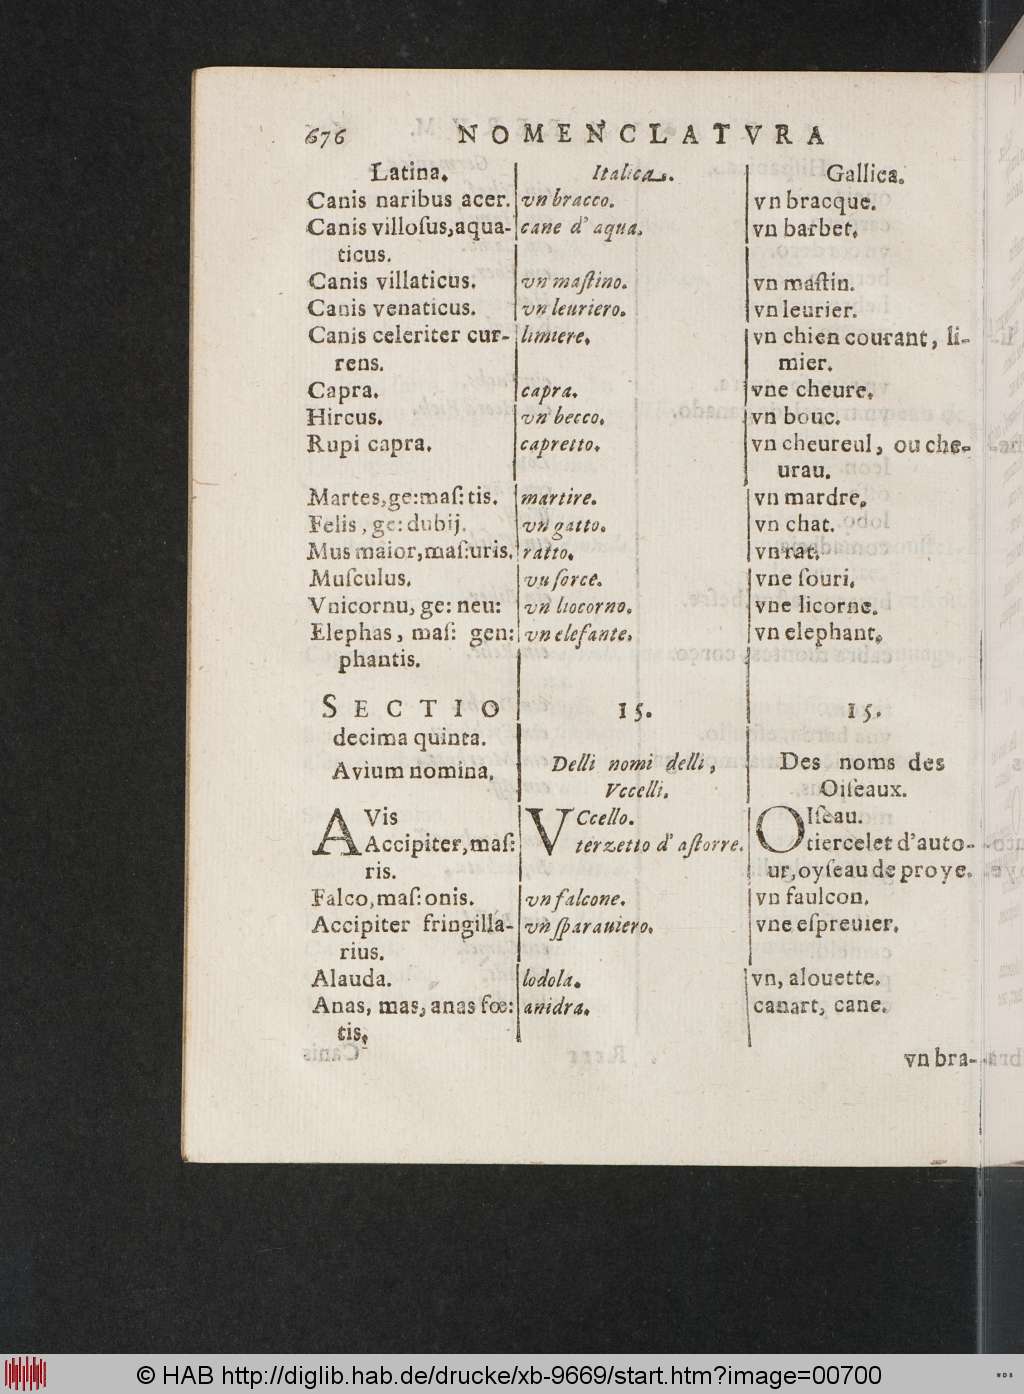 676 NOMENCLATVRA
Latina. Italica. Gallica.
Canis naribus acer. vn bracco. vn bracque.
Canis villoſus,aqua- cane d' aqua. vn barbet.
ticus.
Canis villaticus. vn maſtino. vn maſtin.
Canis venaticus. vn leuriero. vn leurier.
Canis celeriter cur- limiere. vn chien courant, li-
rens. mier.
Capra. capra. vne cheure.
Hircus. vn becco. vn bouc.
Rupi capra. capretto. vn cheureul, ou che-
urau.
Martes,ge:maſ: tis. martire. vn mardre.
Felis, ge: dubij. vn gatto. vn chat.
Mus maior,maſ:uris. ratto. vn rat.
Muſculus. vu ſorce. vne ſouri.
Vnicornu, ge: neu: vn liocorno. vne licorne.
Elephas, maſ: gen: vn elefante. vn elephant.
phantis.
SECTIO 15. 15.
decima quinta.
Avium nomina. Delli nomi delli, Des noms des
Vccelli. Oiſeaux.
AVis VCcello. OIſeau.
Accipiter,maſ: terzetto d' aſtorre. tiercelet d'auto-
ris. ur,oyſeau de proye.
Falco,maſ: onis. vn falcone. vn faulcon.
Accipiter fringilla- vn ſparauiero. vne eſpreuier.
rius.
Alauda. lodola. vn, alouette.
Anas, mas, anas fœ: anidra. canart, cane.
tis.
vn bra-
© HAB http://diglib.hab.de/drucke/xb-9669/start.htm?image=00700